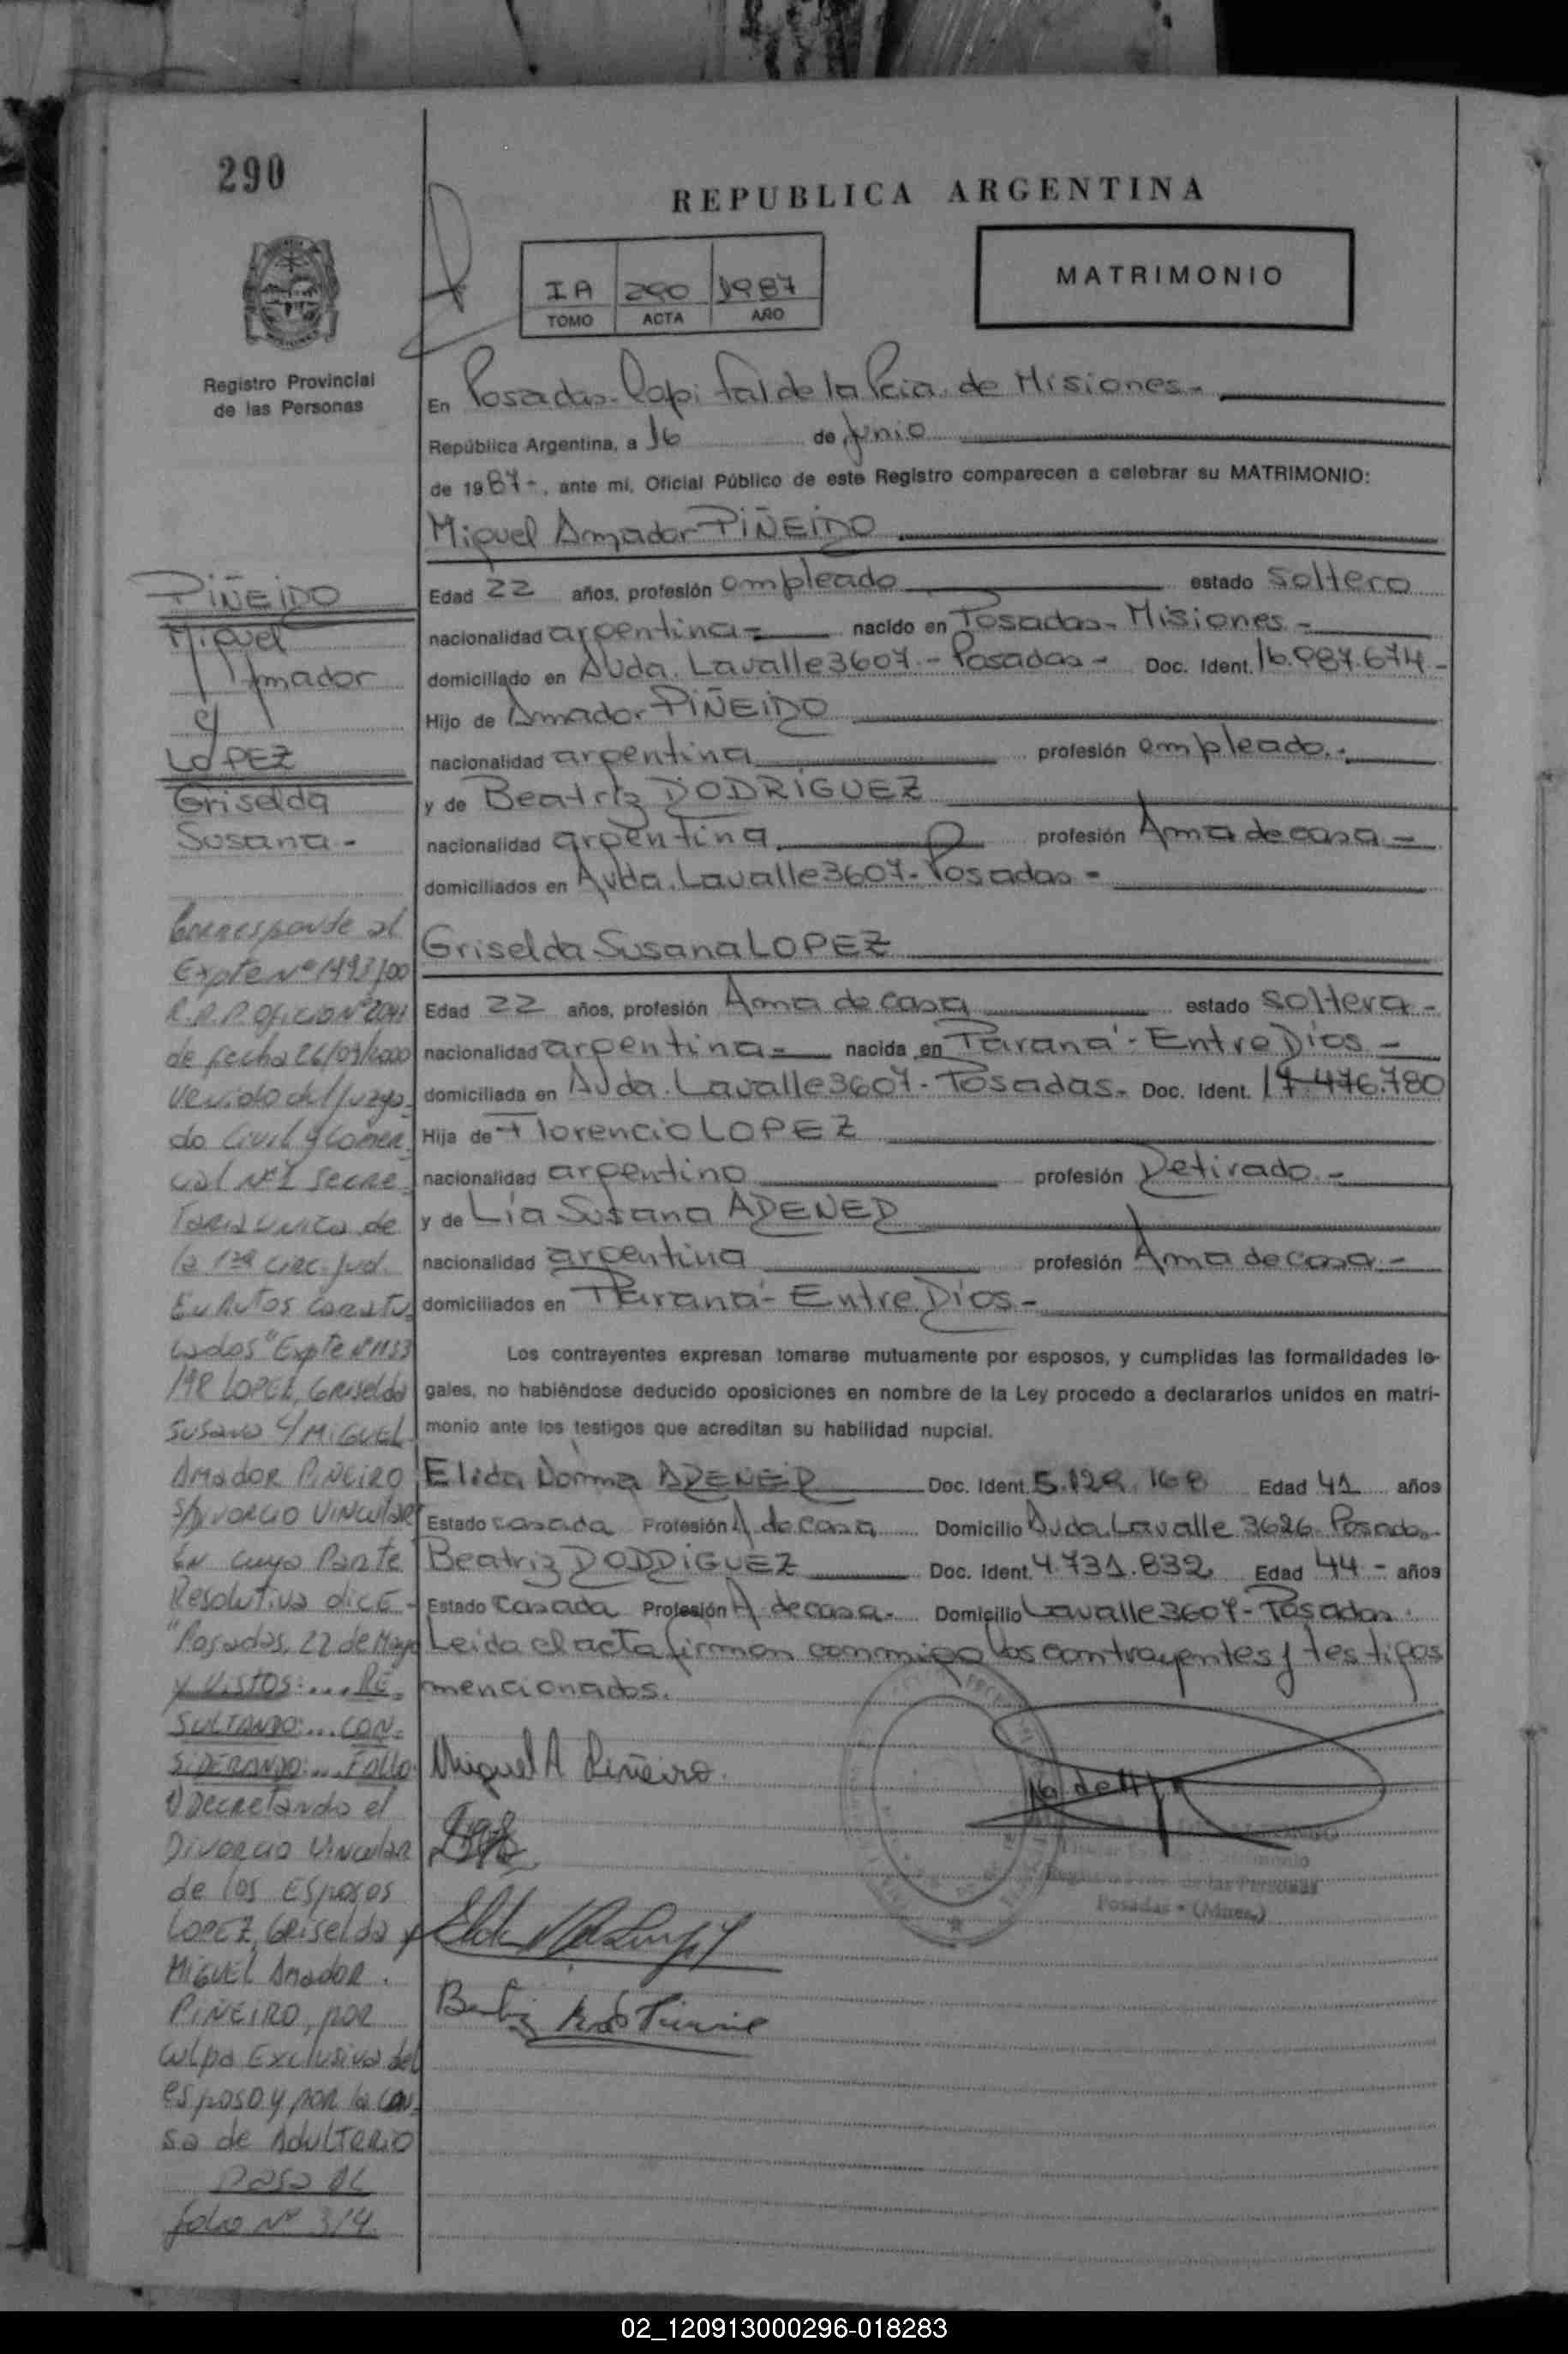 290
REPUBLICA ARGENTINA
IA 290 1987
TOMO ACTA AÑO
MATRIMONIO
Registro Provincial
de las Personas
En Posadas. Capital de la Pcia. de Misiones-
República Argentina, a 16 de Junio
de 1987-, ante mí, Oficial Público de este Registro comparecen a celebrar su MATRIMONIO:
Miguel Amador PIÑEIRO
Edad 22 años, profesión empleado estado soltero
nacionalidad argentina- nacido en Posadas- Misiones-
domiciliado en Avda. Lavalle 3607.- Posadas- Doc. Ident. 16.987.674-
Hijo de Amador PIÑEIRO
nacionalidad argentina profesión empleado.-
y de Beatriz RODRIGUEZ
nacionalidad argentina profesión Ama de casa-
domiciliados en Avda. Lavalle 3607- Posadas-
Griselda Susana LOPEZ
Edad 22 años, profesión Ama de casa estado soltera-
nacionalidad argentina- nacida en Paraná- Entre Ríos-
domiciliada en Avda. Lavalle 3607- Posadas- Doc. Ident. 17.476.780
Hija de Florencio LOPEZ
nacionalidad argentino profesión Retirado.-
y de Lía Susana ARENER
nacionalidad argentina profesión Ama de casa-
domiciliados en Paraná- Entre Ríos-
Los contrayentes expresan tomarse mutuamente por esposos, y cumplidas las formalidades le-
gales, no habiéndose deducido oposiciones en nombre de la Ley procedo a declararlos unidos en matri-
monio ante los testigos que acreditan su habilidad nupcial.
Elida Norma ARENER Doc. Ident. 5.129.168 Edad 41 años
Estado casada Profesión A de casa Domicilio Avda. Lavalle 3626 Posadas
Beatriz RODRIGUEZ Doc. Ident. 4.731.832 Edad 44- años
Estado Casada Profesión A. de casa- Domicilio Lavalle 3607- Posadas
Leida el acta firman conmigo los contrayentes y testigos
mencionados.
Miguel A Piñeiro
de las Personas
Posadas - (Mnes.)
PIÑEIRO
Miguel
Amador
y
LOPEZ
Griselda
Susana-
Corresponde al
Expte Nº 1493/00
R.P.P. Oficio Nº 2041
de fecha 26/09/2000
venido del Juzga-
do Civil y Comer-
cial Nº 1 Secre-
taria Unica de
la 1ra Circ. Jud.
En Autos Caratu-
lados "Expte Nº 1133
/98 LOPEZ, Griselda
Susana c/ MIGUEL
Amador PIÑEIRO
S/Divorcio Vincular
En cuya Parte
Resolutiva dice-
"Posadas, 22 de Mayo
y VISTOS:...RE-
SULTANDO:...CON-
SIDERANDO:...FALLO:
1) Decretando el
Divorcio Vincular
de los Esposos
LOPEZ, Griselda y
MIGUEL Amador
PIÑEIRO, por
culpa Exclusiva del
esposo y por la cau-
sa de Adulterio
PASA AL
folio Nº 314
02_120913000296-018283